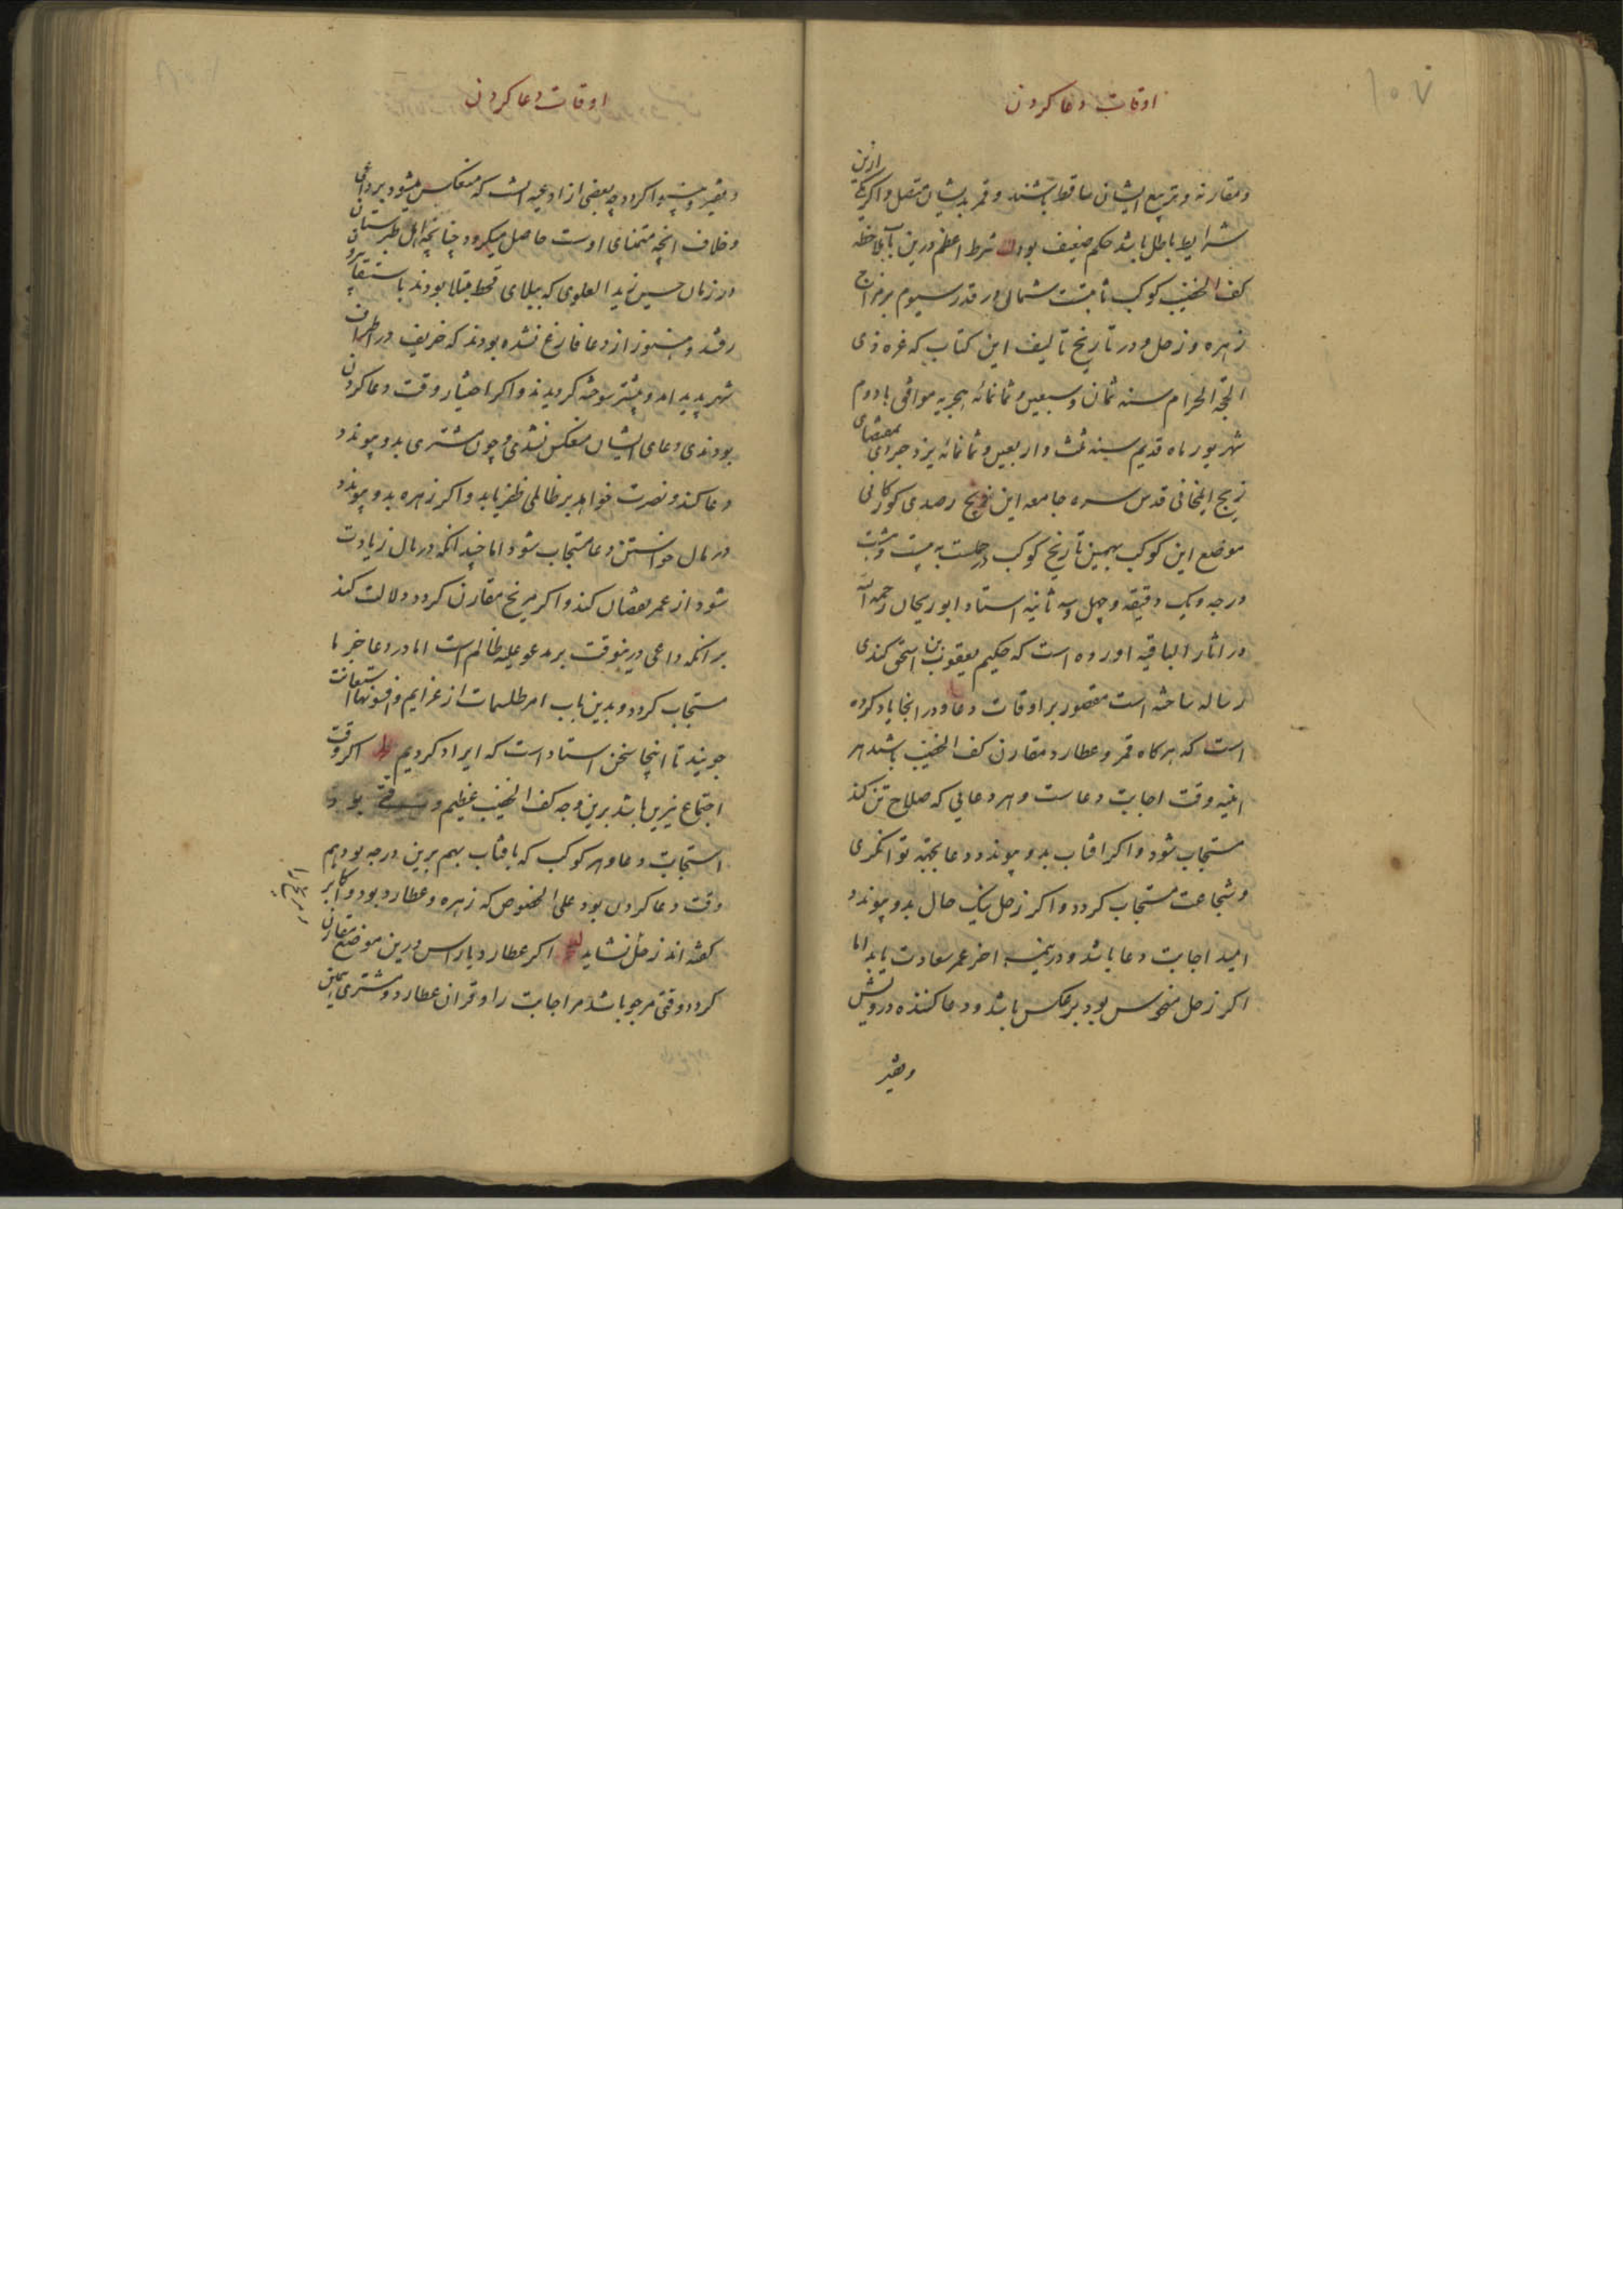 ۱۰۷
اوقات دعا کردن
و مقارنه و تربیع ایشان ساقط باشند و قمر بدیشان متصل و اکر یکی ازین
شرایط باطل باشد حکم ضعیف بود شرط اعظم درین باب ملاحظه
کف الخضیب کوکب ثابتست شمالی در قدر سیوم بر مزاج
زهره و زحل و در تاریخ تالیف این کتاب که غره ذی
الحجة الحرام سنه ثمان و سبعین و ثمانمائه هجریه موافق با دوم
شهریور ماه قدیم سنه ثلث و اربعین و ثمانمائه یزدجردی بمقتضای
زیج ایلخانی قدس سره جامعه این زیج رصدی کورکانی
موضع این کوکب بهمین تاریخ کوکب در حملست به بیست و هشت
درجه و یک دقیقه و چهل و سه ثانیه استاد ابوریحان رحمه الله
در اثار الباقیه اورده است که حکیم یعقوب بن اسحق کندی
رساله ساخته است مقصور بر اوقات دعا و در انجا یاد کرده
است که هرکاه قمر و عطارد مقارن کف الخضیب باشد هر
اینه وقت اجابت دعاست و هر دعایی که صلاح تن کند
مستجاب شود و اکر افتاب بدو پیوندد دعا بجهة توانکری
و شجاعت مستجاب کردد و اکر زحل نیک حال بدو پیوندد
امید اجابت دعا باشد و در نیمه اخر عمر سعادت یابد اما
اکر زحل منحوس بود بر عکس باشد و دعا کننده درویش
و فقیر
اوقات دعا کردن
و فقیر و کردد چه بعضی از ادعیه است که منعکس میشود بر داعی
و خلاف انچه متمنای اوست حاصل میکردد چنانچه اهل طبرستان
در زمان حسین زید العلوی که ببلای قحط مبتلا بودند باستسقا بیرون
رفتند و هنوز از دعا فارغ نشده بودند که حریق در اطراف
شهر پدید امد و بیشتر سوخته کردیدند و اکر اختیار وقت دعا کردن
بودندی دعای ایشان منعکس نشدی و چون مشتری بدو پیوندد
دعا کند و نصرت خواهد بر ظالمی ظفر یابد و اکر زهره بدو پیوندد
در مال خواستن دعا مستجاب شود اما چندانکه در مال زیادت
شود از عمر نقصان کند و اکر مریخ مقارن کردد دلالت کند
بر انکه داعی درینوقت بر مدعو علیه ظالم است اما در دعا خیرها
مستجاب کردد و بدین باب امر طلسمات از عزایم و افسونها استعانت
جویند تا اینجا سخن استاد است که ایراد کردیم اکر وقت
اجتماع نیرین باشد برین وجه کف الخضیب عظیم وقتی بود
استجابت دعا و هر کوکب که با افتاب بهم برین درجه بود هم
وقت دعا کردن بود علی الخصوص که زهره و عطارد بود و اکابر
کفته اند زحل نشاید اکر عطارد با راس درین موضع مقارن
کردد وقتی مرجو باشد مر اجابت را و قران عطارد و مشتری همین